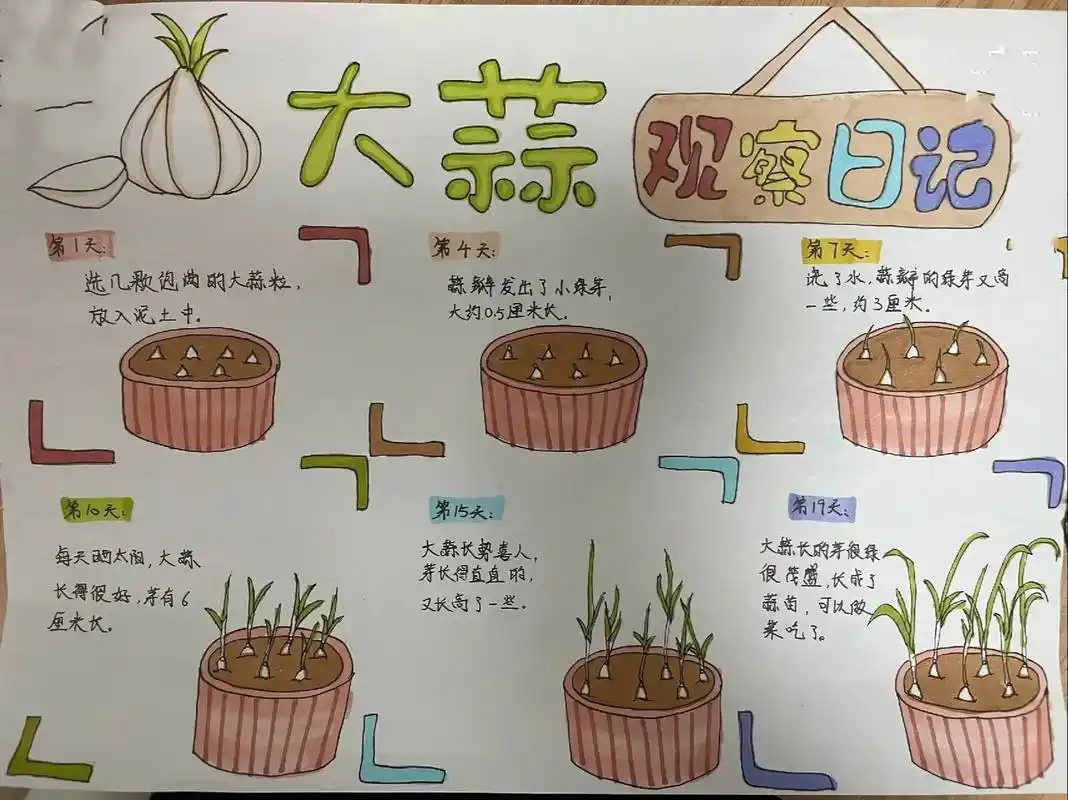 大蒜
观察日记
第1天:
选几颗饱满的大蒜粒,
放入泥土中。
第4天:
蒜瓣发出了小绿芽,
大约0.5厘米长。
第7天:
浇了水,蒜瓣的绿芽又高
一些,约3厘米。
第10天:
每天晒太阳,大蒜
长得很好,芽有6
厘米长。
第15天:
大蒜长势喜人,
芽长得直直的,
又长高了一些。
第19天:
大蒜长的芽很绿
很茂盛,长成了
蒜苗,可以做
菜吃了。